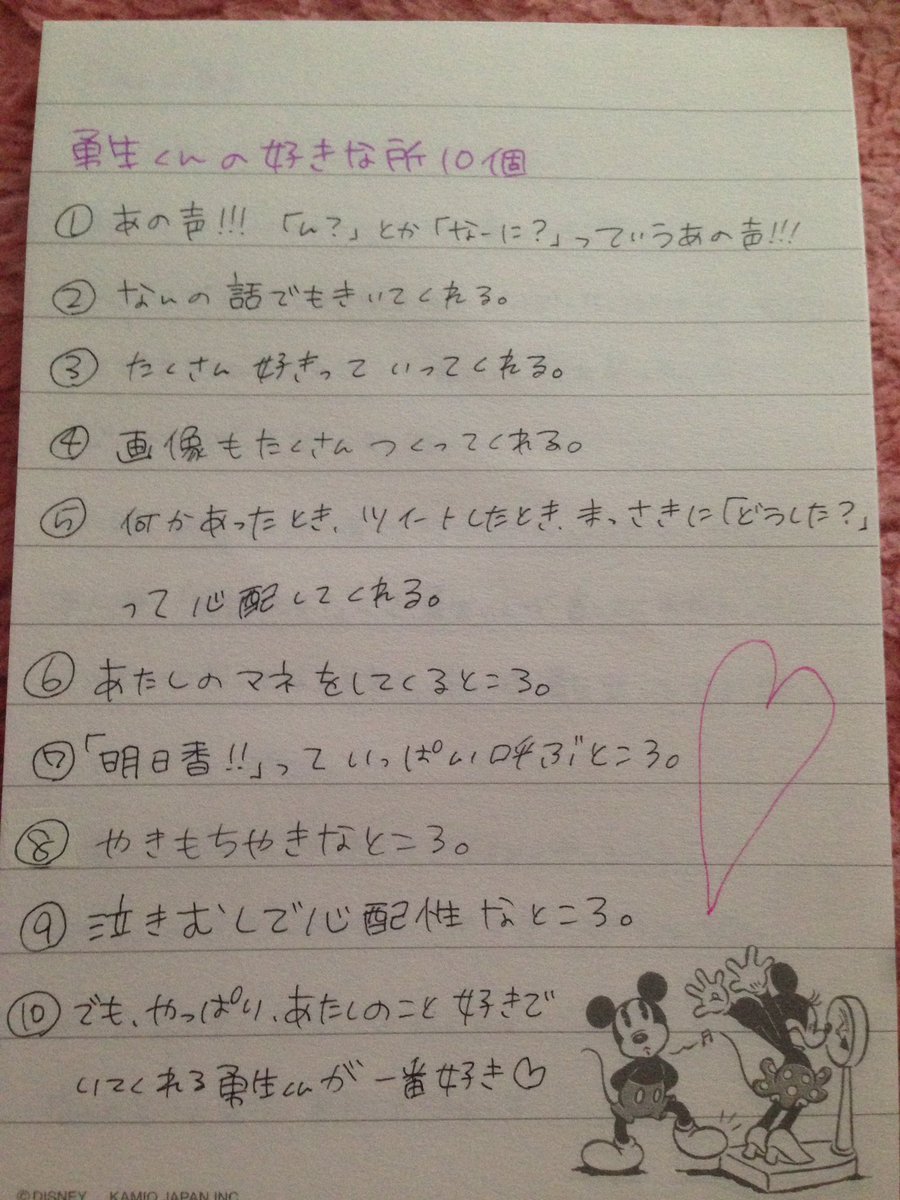 勇生くんの好きな所10個
① あの声!!!「ん?」とか「なーに?」っていうあの声!!!
② なんの話でもきいてくれる。
③ たくさん好きっていってくれる。
④ 画像もたくさんつくってくれる。
⑤ 何かあったとき、ツイートしたとき、まっさきに「どうした?」
って心配してくれる。
⑥ あたしのマネをしてくるところ。
⑦「明日香!!」っていっぱい呼ぶところ。
⑧ やきもちやきなところ。
⑨ 泣きむしで心配性なところ。
⑩ でも、やっぱり、あたしのこと好きで
いてくれる勇生くんが一番好き♡
©DISNEY KAMIO JAPAN INC